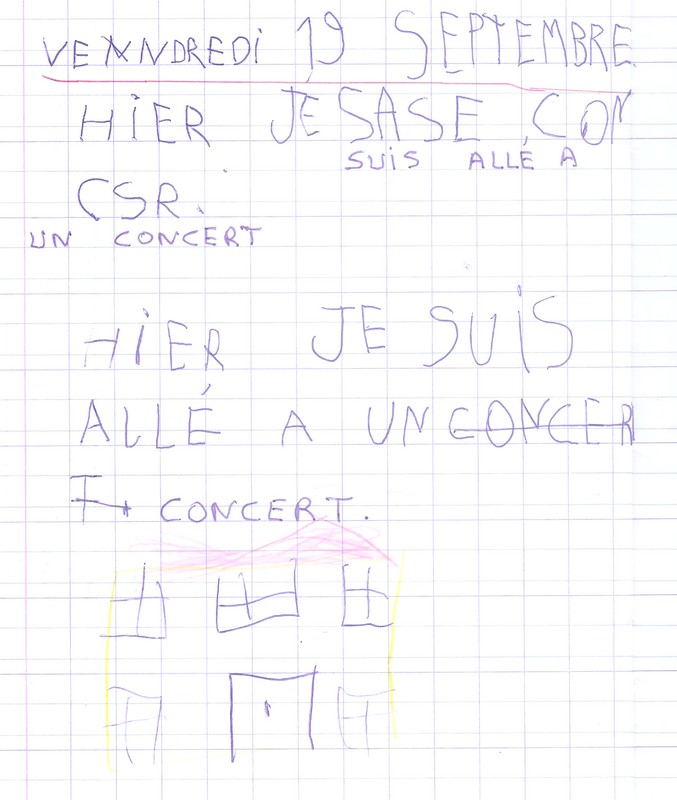 VENNDREDI 19 SEPTEMBRE
HIER JE SASE CON
SUIS ALLÉ A
CSR.
UN CONCERT
HIER JE SUIS
ALLÉ A UN CONCER
T CONCERT.